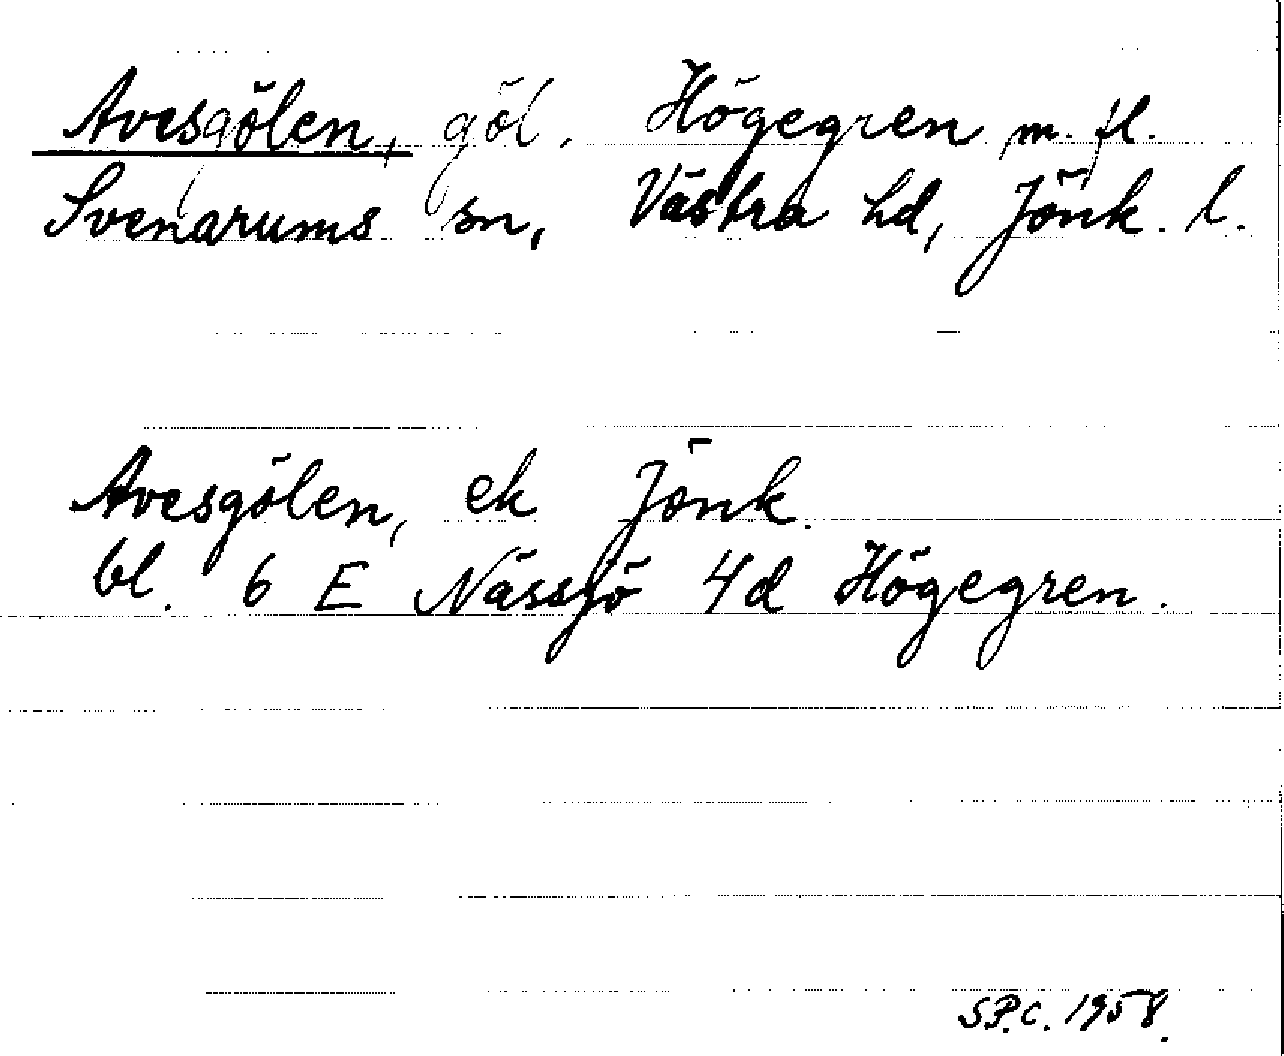 Avesgölen, göl. Högegren m. fl.
Svenarums sn, Västra hd, Jönk. l.
Avesgölen, ek Jönk.
bl. 6 E Nässjö 4d Högegren.
S.P.C. 1958.